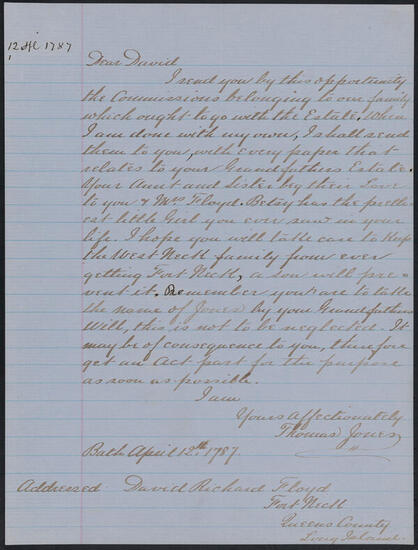 12 Ap 1787
Dear David
I send you by this opportunity
the Commissions belonging to our family
which ought to go with the Estate. When
I am done with my own, I shall send
them to you, with every paper that
relates to your Grandfathers Estate.
Your Aunt and Sister by their Love
to you & Mrs Floyd. Betsey has the pretti-
est little Girl you ever saw in your
life. I hope you will take care to keep
the West Neck family from ever
getting Fort Neck, a son will pre-
vent it. Remember you are to take
the name of Jones by your Grandfathers
Will, this is not to be neglected. It
may be of consequence to you, therefore
get an Act past for the purpose
as soon as possible.
I am
Yours Affectionately
Thomas Jones
Bath April 12th 1787.
Addressed David Richard Floyd
Fort Neck
Queens County
Long Island.